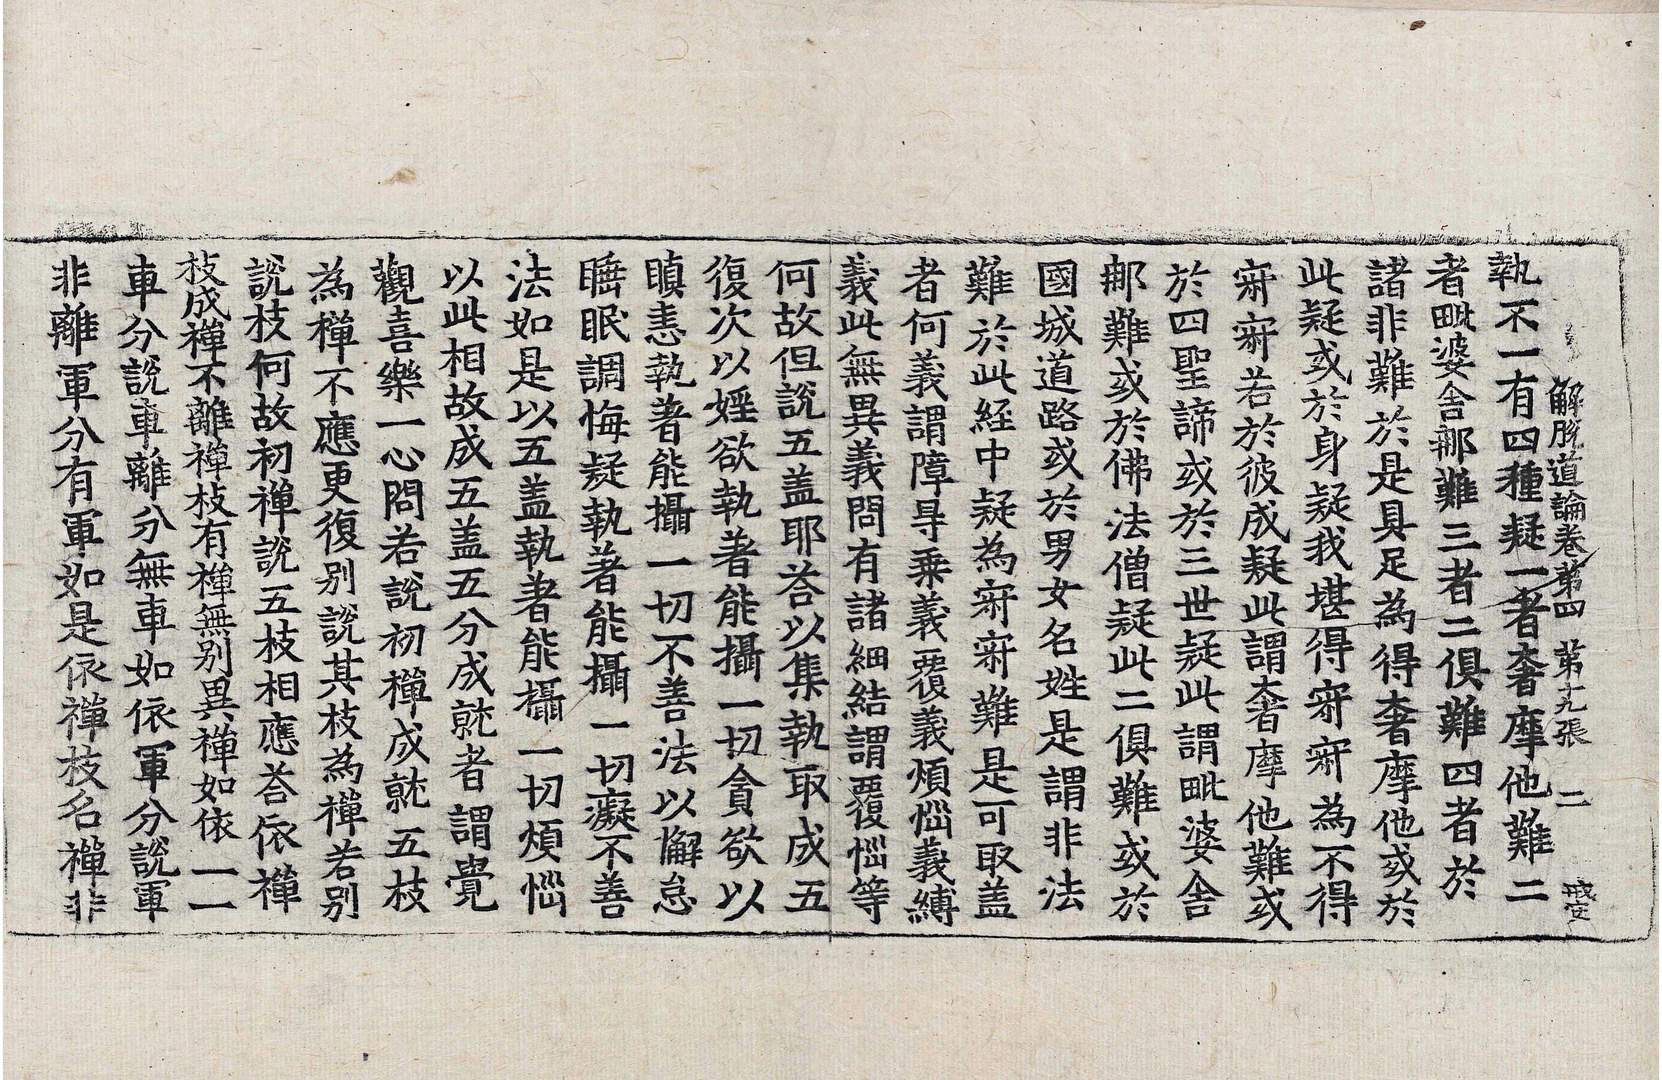 解脫道論卷第四　第十九張　二
執不一有四種疑一者奢摩他難二
者毗婆舍那難三者二俱難四者於
諸非難於是具足為得奢摩他或於
此疑或於身疑我堪得寂寂為不得
寂寂若於彼成疑此謂奢摩他難或
於四聖諦或於三世疑此謂毗婆舍
那難或於佛法僧疑此二俱難或於
國城道路或於男女名姓是謂非法
難於此経中疑為寂寂難是可取盖
者何義謂障㝵乗義覆義煩惱義縛
義此無異義問有諸細結謂覆惱等
何故但說五盖耶荅以集執取成五
復次以婬欲執著能攝一切貪欲以
瞋恚執著能攝一切不善法以懈怠
睡眠調悔疑執著能攝一切癡不善
法如是以五盖執著能攝一切煩惱
以此相故成五盖五分成就者謂覺
觀喜樂一心問若說初禪成就五枝
為禪不應更復别說其枝為禪若别
說枝何故初禪說五枝相應荅依禪
枝成禪不離禪枝有禪無别異禪如依一一
車分說車離分無車如依軍分說軍
非離軍分有軍如是依禪枝名禪非